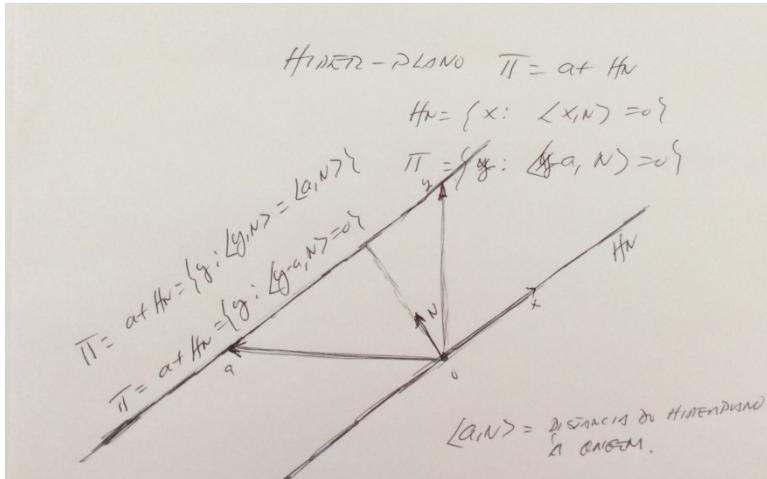 HIPER-PLANO π = a + HN
HN = { x : ⟨x,N⟩ = 0 }
π = { y : ⟨y-a, N⟩ = 0 }
π = a + HN = { y : ⟨y,N⟩ = ⟨a,N⟩ }
π = a + HN = { y : ⟨y-a,N⟩ = 0 }
y
HN
N
x
a
0
⟨a,N⟩ = DISTÂNCIA DO HIPERPLANO
À ORIGEM.